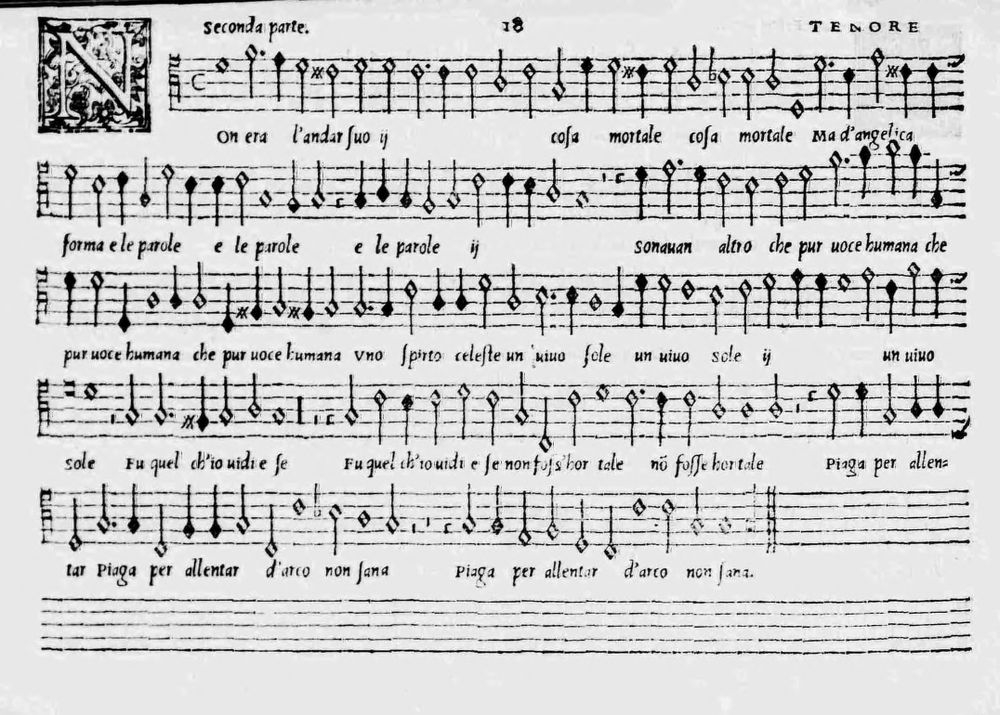 Seconda parte. 18 TENORE
NOn era l'andar ſuo ij coſa mortale coſa mortale Ma d'angelica
forma e le parole e le parole e le parole ij Sonauan altro che pur uoce humana che
pur uoce humana che pur uoce humana Vno ſpirto celeſte un uiuo ſole un uiuo Sole ij un uiuo
Sole Fu quel ch'io uidi e ſe Fu quel ch'io uidi e ſe non foſſ'hor tale nõ foſſe hor tale Piaga per allen=
tar Piaga per allentar d'arco non ſana Piaga per allentar d'arco non ſana.